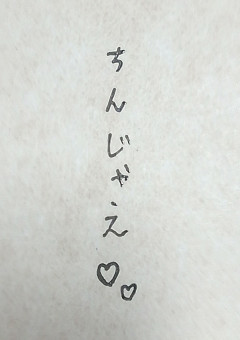 ちんじゃえ♡♡